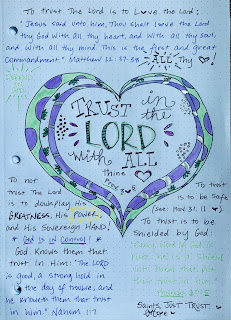 To trust The Lord is to Love the Lord:
"Jesus said unto him, Thou shalt love the Lord
thy God with all thy heart, and with all thy soul,
and with all thy mind. This is the first and great
commandment." Matthew 22:37-38
ALL Thy
TRUST in
the
LORD
with ALL
thine
Prov 3
To not
trust The Lord
is to downplay His
GREATNESS, His Power
and His Sovereign HAND!
* God is in Control! *
God Knows them that
trust in Him: "The LORD
is good, a strong hold in
the day of trouble; and
he knoweth them that trust
in him." Nahum 1:7
To trust
is to be Safe
To trust is to be
Shielded by God:
Saints, JUST TRUST